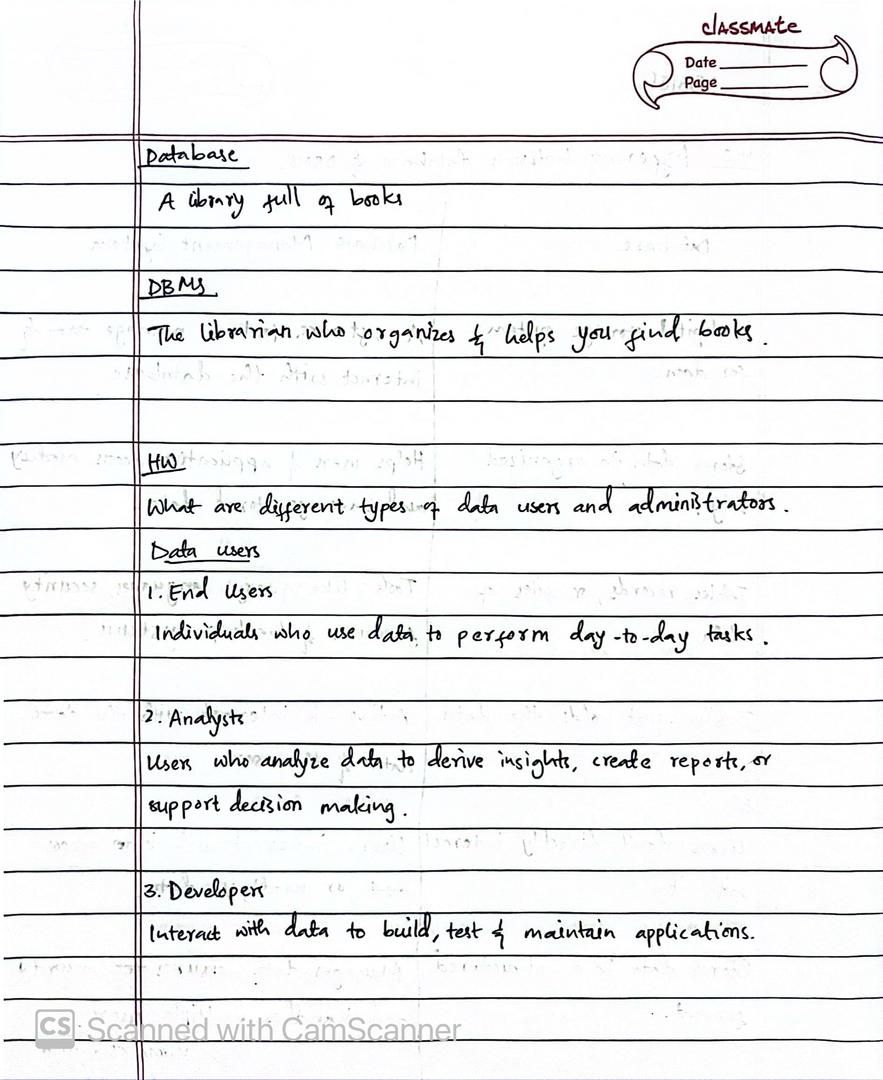 classmate
Date
Page
Database
A library full of books
DBMS
The librarian who organizes & helps you find books.
HW
What are different types of data users and administrators.
Data users
1. End Users
Individuals who use data to perform day-to-day tasks.
2. Analysts
Users who analyze data to derive insights, create reports, or
support decision making.
3. Developers
Interact with data to build, test & maintain applications.
CS Scanned with CamScanner